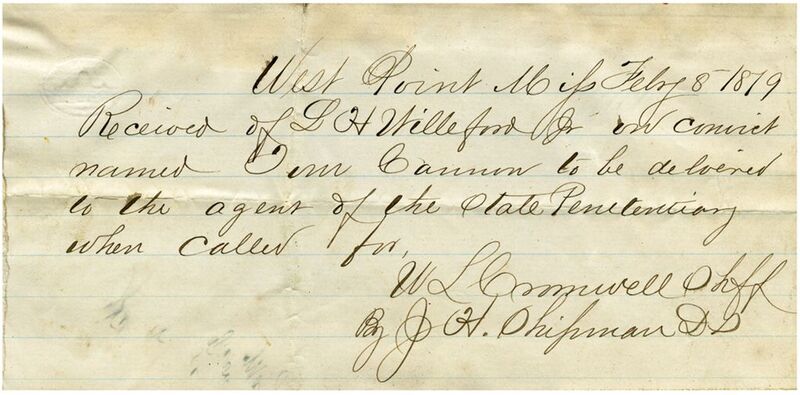 West Point Miss Feby 8 1879
Received of L H Willeford Jr on convict
named Tom Cannon to be delivered
to the agent of the State Penetentiary
when called for,
W L Cromwell Shff
By J H. Shipman D S